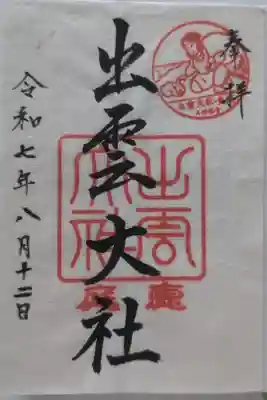 奉拝
出雲大社
出雲大社
令和七年八月十二日